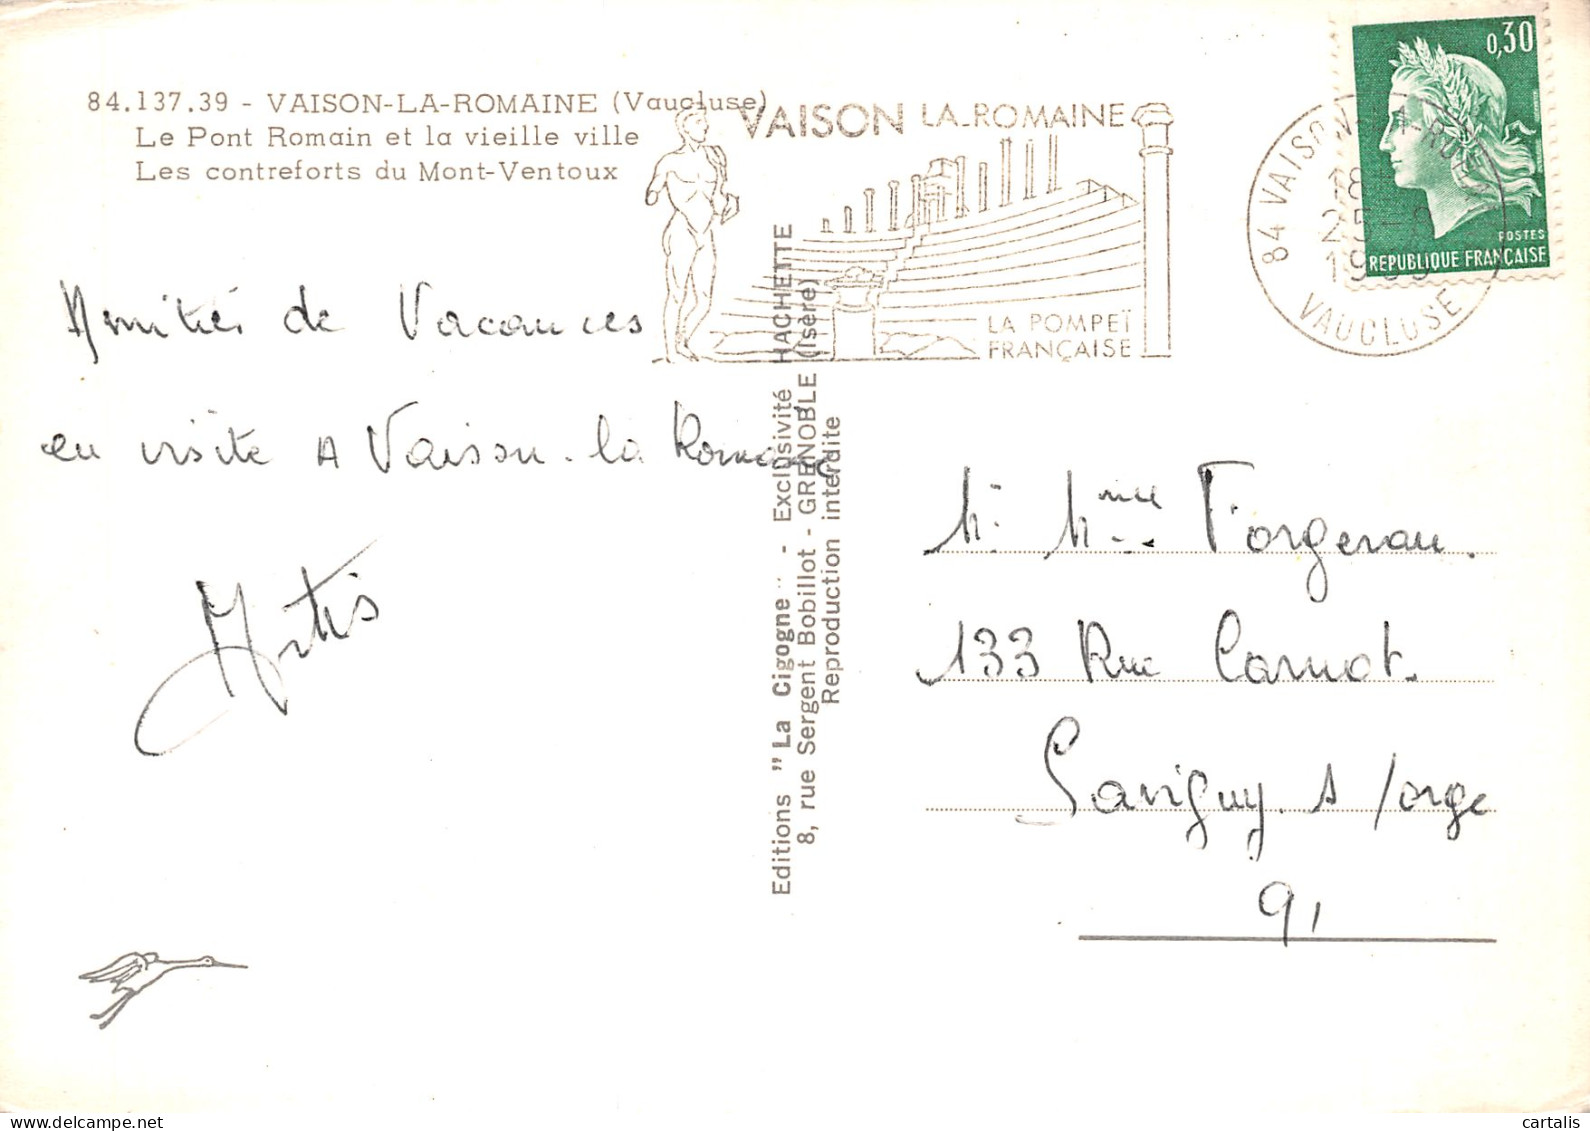 84.137.39 - VAISON-LA-ROMAINE (Vaucluse)
Le Pont Romain et la vieille ville
Les contreforts du Mont-Ventoux
VAISON LA-ROMAINE
LA POMPEÏ
FRANÇAISE
84 VAISON-LA-ROMAINE
18
25-8
1969
VAUCLUSE
0,30
POSTES
REPUBLIQUE FRANÇAISE
Amitiés de Vacances
en visite A Vaison-la Romaine
Editions "La Cigogne" - Exclusivité HACHETTE
8, rue Sergent Bobillot - GRENOBLE (Isère)
Reproduction interdite
M. Mme Forgerau.
133 Rue Carnot.
Savigny. s/orge
91
cartalis